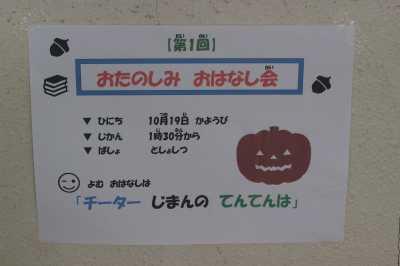 【第1回】
おたのしみ おはなし会
▼ ひにち 10月19日 かようび
▼ じかん 1時30分から
▼ ばしょ としょしつ
よむ おはなしは
「チーター じまんの てんてんは」